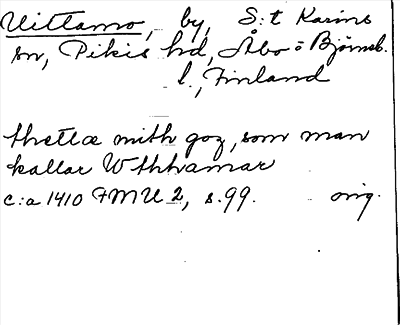 Uittamo, by, S:t Karins
sn, Pikis hd, Åbo o Björneb.
l., Finland
thetlæ mith goz, som man
kallar Wthhamar
c:a 1410 FMU 2, s. 99. orig.